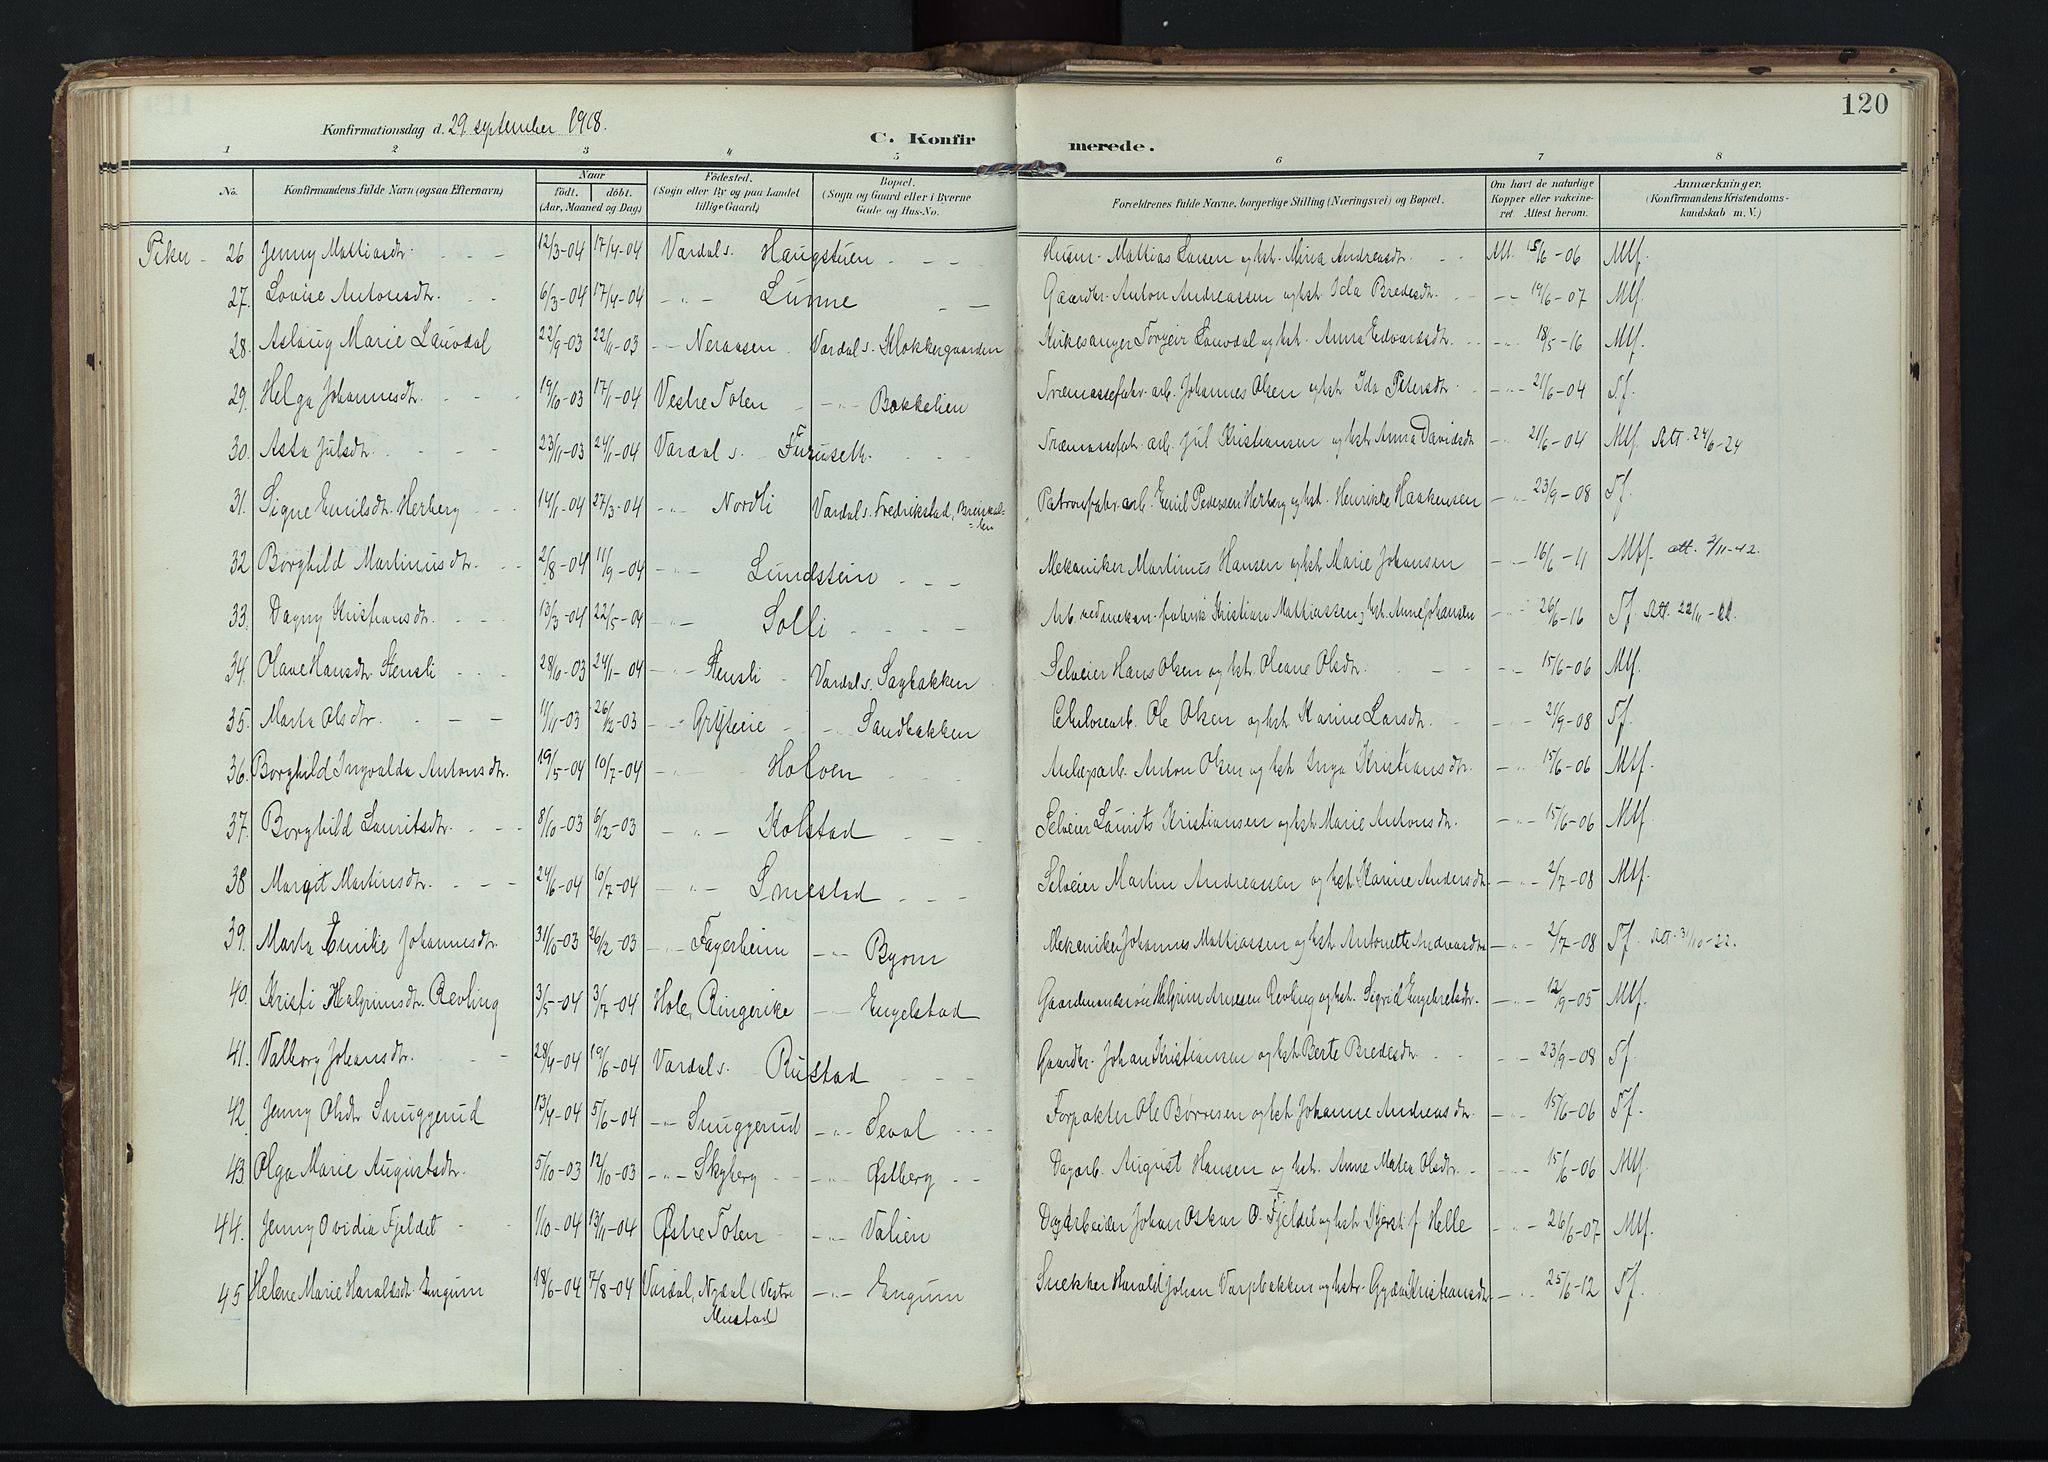 120
Konfirmationsdag d. 29 september 1918.
C. Konfirmerede.
1 2 3 4 5 6 7 8
No. Konfirmandens fulde Navn (ogsaa Efternavn) Naar født. døbt. (Aar, Maaned og Dag) Fødested. (Sogn eller By og paa Landet tillige Gaard) Bopæl. (Sogn og Gaard eller i Byerne Gade og Hus-No. Forældrenes fulde Navne, borgerlige Stilling (Næringsvei) og Bopæl. Om havt de naturlige Kopper eller vakcineret. Attest herom. Anmærkninger. (Konfirmandens Kristendomskundskab m. V.)
Piker - 26 Jenny Mattiasdtr. 12/3-04 17/4-04 Vardal s. Haugstuen Husm. Mattias Larsen og hst. Mina Andreasdtr. Att. 15/6-06 Mtf.
27. Lovise Antonsdtr. 6/3-04 17/4-04 -"- Lunne Gaardbr. Anton Andreassen og hst. Ida Bredesdtr. -"- 19/6-07 Mtf.
28. Aslaug Marie Lauvdal 22/9-03 22/11-03 -"- Neraasen Vardal s. Klokkergaarden Kirkesanger Torgeir Lauvdal og hst. Anna Edvardsdtr. -"- 18/5-16 Mtf.
29. Helga Johannesdtr. 19/10-03 17/1-04 Vestre Toten -"- Bakkelien Træmassefabr. arb. Johannes Olsen og hst. Ida Petersdtr. -"- 21/6-04 Tf.
30. Asta Julsdtr. 23/11-03 24/1-04 Vardal s. Furuseth. Træmassefabr. arb. Jul Kristiansen og hst. Anna Davidsdtr -"- 21/6-04 Mtf. Att. 24/6-24
31. Signe Emilsdtr. Herberg 14/1-04 27/3-04 -"- Nordli Vardal s. Fredrikstad, Patronfabr. arb. Emil Pedersen Herberg og hst. Henrikke Haakensen -"- 23/9-08 Tf.
32 Borghild Martinusdtr. 2/8-04 11/9-04 -"- Lundstein Mekaniker Martinus Hansen og hst. Marie Johansen -"- 16/6-11 Mtf. att. 2/11-42.
33. Dagny Kristiansdtr. 13/3-04 22/5-04 -"- Solli Arb. ved mekan. fabrik Kristian Mattiassen, hst. Anne Johansen -"- 26/6-16 Tf. Att. 22/11-22.
34. Olave Hansdtr. Stensli 28/10-03 24/1-04 -"- Stensli Vardal s. Sagbakken Selveier Hans Olsen og hst. Oleane Olsdtr. -"- 15/6-06 Mtf.
35. Marta Olsdtr. 11/11-03 26/12-03 -"- Gryteeie -"- Sandbakken Cellulosearb. Ole Olsen og hst. Karine Larsdtr. -"- 21/9-08 Tf.
36. Borghild Ingvalda Antonsdtr. 19/5-04 10/7-04 -"- Holven Anlægsarb. Anton Olsen og hst. Inga Kristiansdtr. -"- 15/6-06 Mtf.
37. Borghild Lauritsdtr. 8/10-03 6/12-03 -"- Kolstad Selveier Laurits Kristiansen og hst. Marie Antonsdtr. -"- 15/6-06 Mtf.
38 Margit Martinsdtr. 24/6-04 10/7-04 -"- Smestad Selveier Martin Andreassen og hst. Karine Andersdtr. -"- 2/7-08 Mtf.
39. Marta Emilie Johannesdtr 31/10-03 26/12-03 -"- Fagerheim -"- Byom Mekaniker Johannes Mattiassen og hst. Antonette Andreasdtr -"- 2/7-08 Tf. Att. 31/10-22.
40. Kristi Halgrimsdtr. Revling 3/5-04 3/7-04 Hole, Ringerike -"- Engelstad Gaardmandssøn Halgrim Arnesen Revling og hst. Sigrid Engebretsdtr. -"- 12/9-05 Mtf.
41. Valborg Johansdtr. 28/4-04 19/6-04 Vardal s. Rustad Gaardbr. Johan Kristiansen og hst. Berte Bredesdtr -"- 23/9-08 Tf.
42. Jenny Olsdtr Snuggerud 13/4-04 5/6-04 -"- Snuggerud -"- Seval Forpakter Ole Børresen og hst. Johanne Andreasdtr. -"- 15/6-06 Tf.
43 Olga Marie Augustsdtr. 5/10-03 12/10-03 -"- Skyberg -"- Østberg Dagarb. August Hansen og hst. Anne Matea Olsdtr. -"- 15/6-06 Mtf.
44. Jenny Ovidia Fjeldet 1/10-04 13/11-04 Østre Toten -"- Valien Dagarbeider Johan Oskar O. Fjeldet og hst. Kjersti f. Helle -"- 26/6-07 Mtf.
45 Helene Marie Haraldsdtr. Engum 18/6-04 7/8-04 Vardal, Nydal (Vestre Mustad) -"- Engum Snekker Harald Johan Varpbakken og hstr. Gyda Kristiansdtr. -"- 25/6-12 Tf.